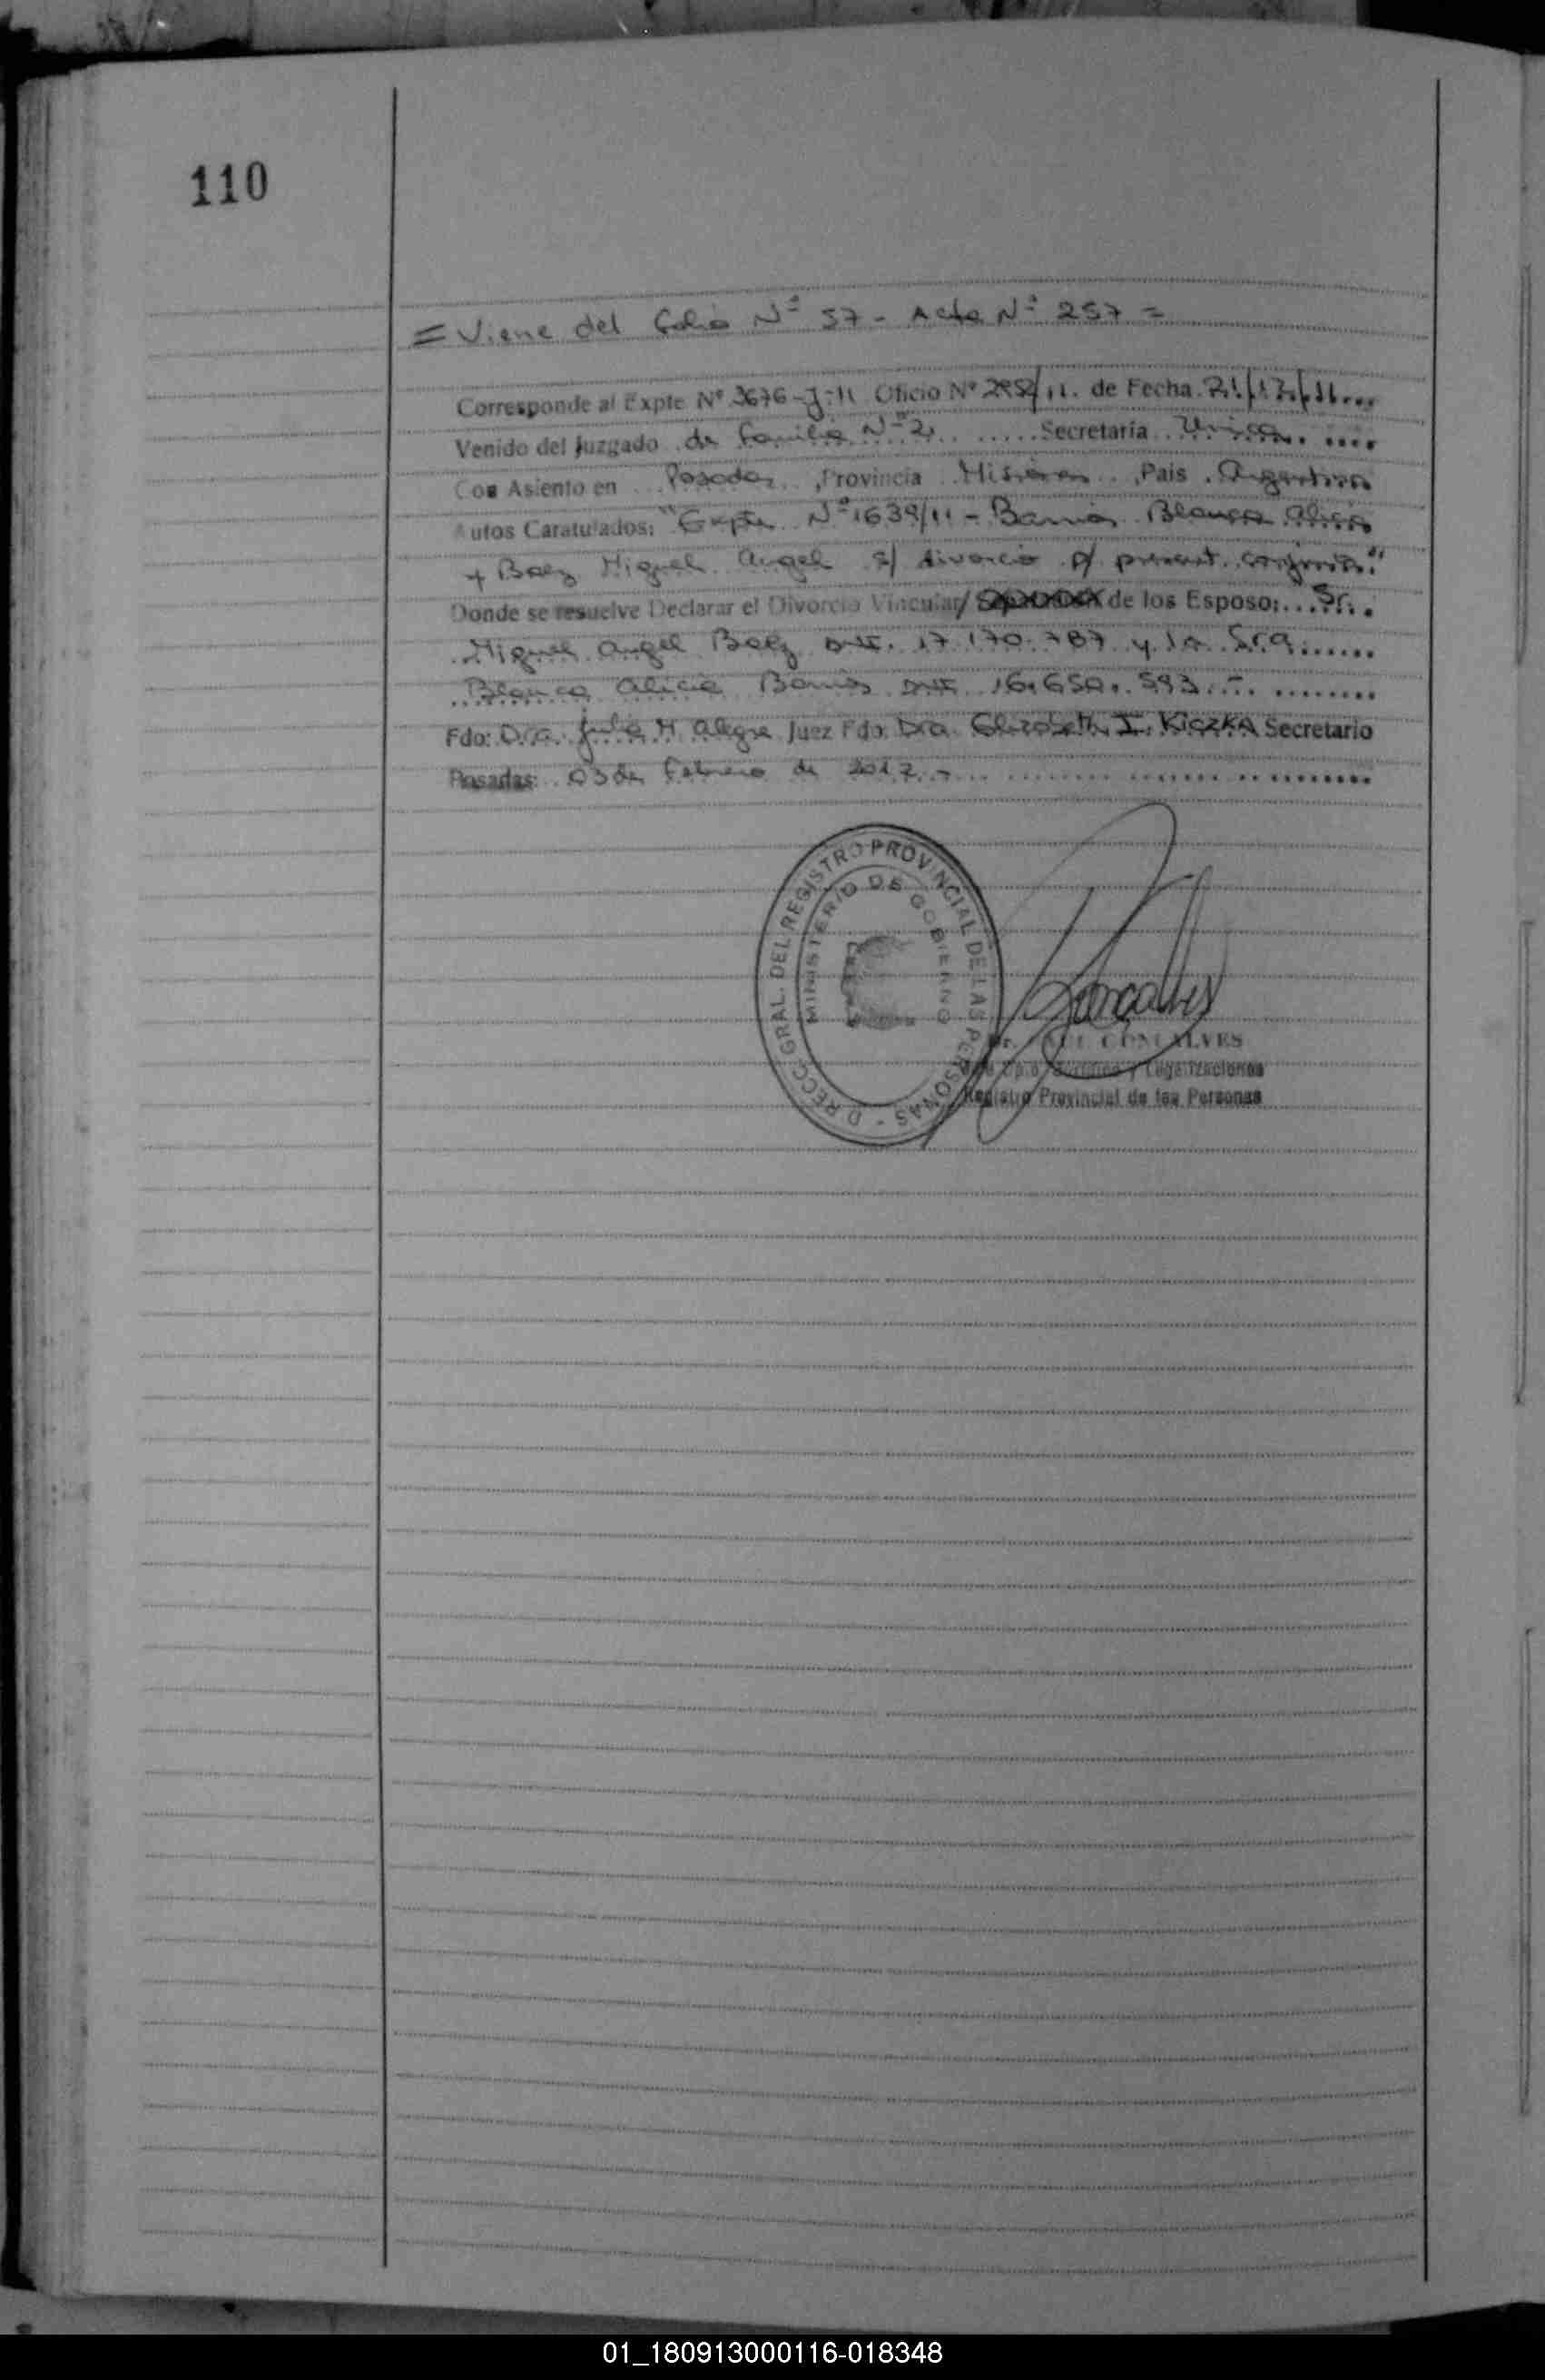 110
= Viene del folio Nº 57 - Acta Nº 257 =
Corresponde al Expte Nº 3676-J-11 Oficio Nº 2952/11. de Fecha 21/12/11
Venido del Juzgado de Familia Nº 2 Secretaría Unica
Con Asiento en Posadas, Provincia Misiones, País Argentina
Autos Caratulados: "Expte Nº 1639/11 - Barrios Blanca Alicia
+ Baez Miguel Angel s/ divorcio p/ present. conjunta."
Donde se resuelve Declarar el Divorcio Vincular/ de los Esposo: Sr.
Miguel Angel Baez DNI. 17.170.787 y la Sra.
Blanca Alicia Barrios DNI 16.650.593.-
Fdo: Dra. Julia M Alegre Juez Fdo: Dra. Elizabeth I. KiczKA Secretario
Posadas: 03 de Febrero de 2012.-
DIRECC. GRAL. DEL REGISTRO PROVINCIAL DE LAS PERSONAS -
MINISTERIO DE GOBIERNO
Goncalves
Dr. RAUL GONCALVES
y Legalizaciones
Registro Provincial de las Personas
01_180913000116-018348